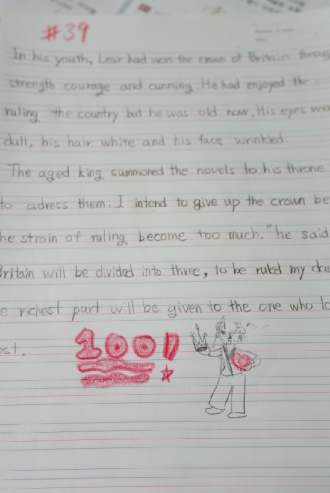 #39
In his youth, Lear had won the crown of Britain throug
strength courage and cunning. He had enjoyed the
ruling the country but he was old now, His eyes we
dull, his hair white and his face wrinkled.
The aged king summoned the novels to his throne
to adress them. I intend to give up the crown be
he strain of ruling become too much." he said
Britain will be divided into three, to be ruled my dau
e richest part will be given to the one who lo
st.
100